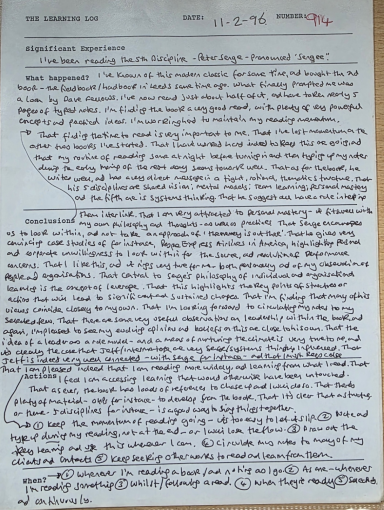 THE LEARNING LOG DATE: 11-2-96 NUMBER: 914
Significant Experience
I've been reading the 5th Discipline - Peter Senge - Pronounced 'Sengee'
What happened? I've known of this modern classic for some time, and bought the
book - the fieldbook I had some time ago. What finally prompted me was
a loan by Dave. I've now read just about half of it, and have taken nearly 5
pages of typed notes. I'm finding the book a very good read, with plenty of very powerful
concepts and practical ideas. I'm working hard to maintain my reading momentum.
That finding the time to read is very important to me. That I've lost momentum on the
other two books I've started. That I have worked hard indeed to keep this one going and
that my routine of reading some at night before turning in and then typing up my notes
during the early the next day seems to work well. That as for the book, the
writer has a very clear message in a tight, rational, thematic structure, that
his 5 disciplines are shared vision; mental models; team learning; personal mastery
and the fifth one is systems thinking. That he suggests all have a role in helping
Conclusions them interlink. That I am very attracted to Personal mastery - it fits in with
my own philosophy and thoughts - as well as practices. That Senge encourages
us to look within, and not to take an approach of 'the enemy is out there'. That he gives very
convincing case studies of for instance, People Express Airlines in America, highlighting personal
and corporate unwillingness to look within for the source, and resolution of performance
concerns. That I like this, and it rings very true for me - both personally and of my observation of
people and organisations. That central to Senge's philosophy of individual and organisational
learning is the concept of leverage. That this highlights the key points of structures or
action that will lead to significant and sustained change. That I'm finding that many of his
views coincide closely to my own. That I'm looking forward to circulating my notes to my
Seared team. That there are some very useful information on leadership within the book and
again, I'm pleased to see my existing opinions and beliefs on this are close to his own. That the
idea of a leader as a role model - and a model of nurturing the climate is very true to me, and
is clearly the case that Jeff's internships are very Senge/systems thinking influenced. That
Jeff is indeed very well connected - with Senge for instance - and that I must keep close
That I am pleased indeed that I am reading more widely and learning from what I read. That
Actions I feel I am accessing learning that would otherwise have been untouched.
That as ever, the book has loads of references to chase up and I will close. That there's
plenty of material - OHTs for instance - to develop from the book. That it's clear that a structure
or theme - 5 disciplines for instance - is a good way to bring things together.
① Keep the momentum of reading going - it's too easy to let it slip ② Note and
type up during my reading, not at the end - or I will lose the flow. ③ Draw out the
key learning and use this wherever I can. ④ Circulate my notes to many of my
clients and contacts ⑤ Keep seeking other works to read and learn from them.
When? ① Whenever I'm reading a book/and noting as I go ② As one - whenever
I'm reading something ③ Whilst/following a read. ④ When they're ready ⑤ Searching
and continuously.